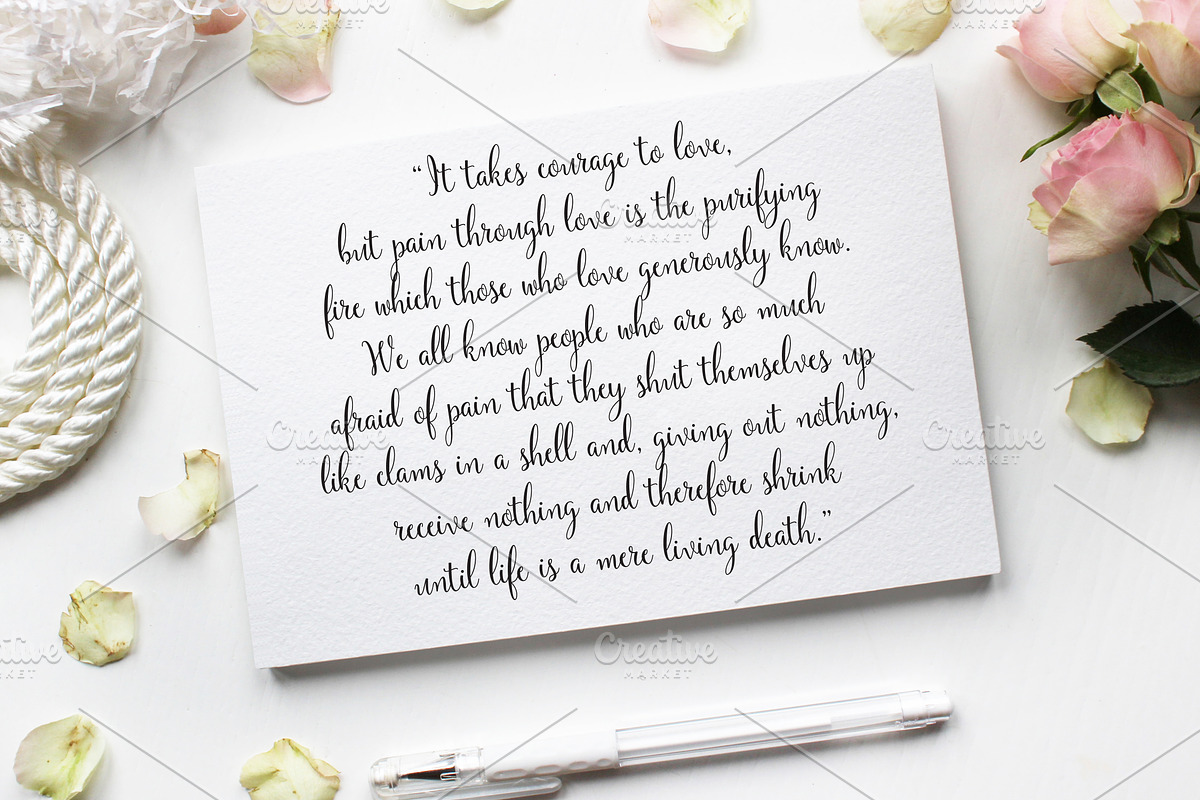 “It takes courage to love,
but pain through love is the purifying
fire which those who love generously know.
We all know people who are so much
afraid of pain that they shut themselves up
like clams in a shell and, giving out nothing,
receive nothing and therefore shrink
until life is a mere living death.”
Creative
MARKET
Creative
MARKET
Creative
MARKET
Creative
MARKET
Creative
MARKET
Creative
MARKET